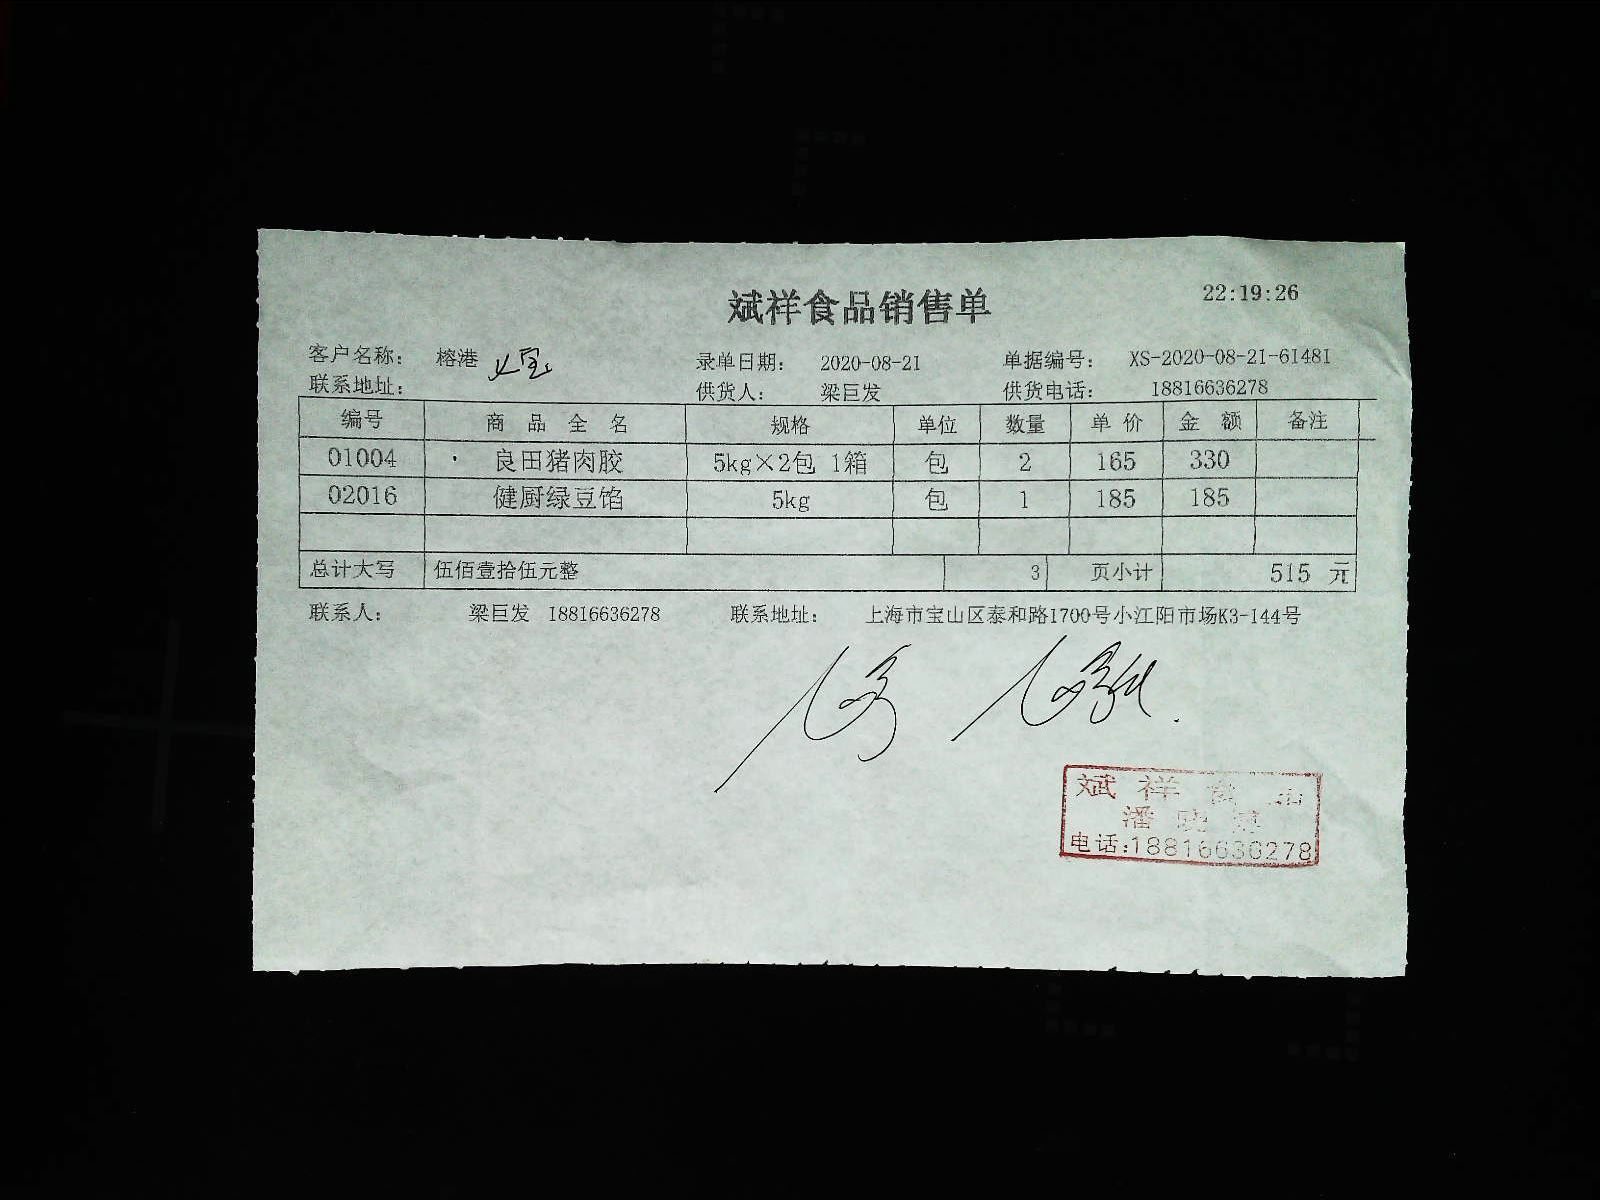 斌祥食品销售单 22:19:26
客户名称： 榕港 录单日期： 2020-08-21 单据编号： XS-2020-08-21-61481
联系地址： 供货人： 梁巨发 供货电话： 18816636278
编号 商品全名 规格 单位 数量 单价 金额 备注
01004 良田猪肉胶 5kg×2包 1箱 包 2 165 330
02016 健厨绿豆馅 5kg 包 1 185 185
总计大写 伍佰壹拾伍元整 3 页小计 515 元
联系人： 梁巨发 18816636278 联系地址： 上海市宝山区泰和路1700号小江阳市场K3-144号
斌祥食品
潘晓
电话:18816636278